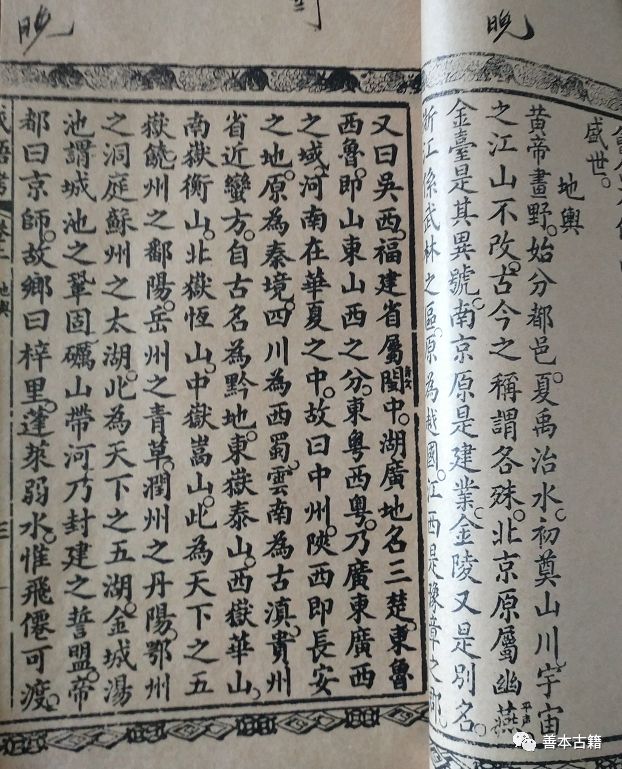 晚
盛世。
地輿
黃帝畫野。始分都邑。夏禹治水。初奠山川。宇宙
之江山不改。古今之稱謂各殊。北京原屬幽燕平声
金臺是其異號。南京原是建業。金陵又是別名。
浙江係武林之區。原為越國。江西是豫章之郡。
晚
又曰吳西。福建省屬閩中。湖廣地名三楚。東魯
西魯。即山東山西之分。東粤西粤。乃廣東廣西
之域。河南在華夏之中。故曰中州。陝西即長安
之地。原為秦境。四川為西蜀。雲南為古滇。貴州
省近蠻方。自古名為黔地。東嶽泰山。西嶽華山。
南嶽衡山。北嶽恆山。中嶽嵩山。此為天下之五
嶽。饒州之鄱陽。岳州之青草。潤州之丹陽。鄂州
之洞庭。蘇州之太湖。此為天下之五湖。金城湯
池。謂城池之鞏固。礪山帶河。乃封建之誓盟。帝
都曰京師。故鄉曰梓里。蓬萊弱水。惟飛僊可渡。
語考 地輿 三
善本古籍